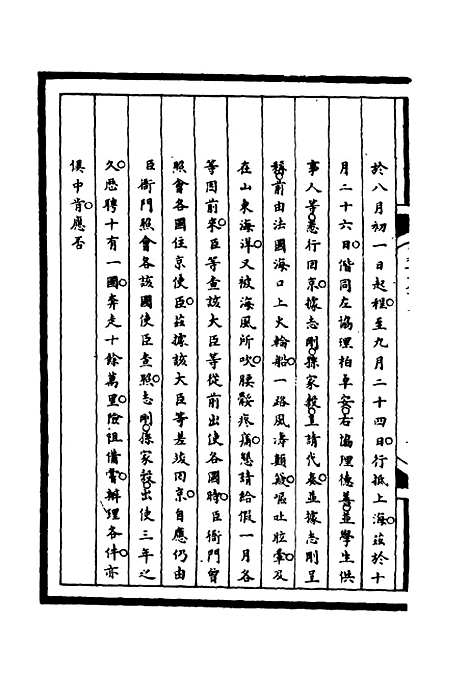 於八月初一日起程至九月二十四日行抵上海茲於十
月二十六日偕同左協理柏卓安右協理德善並學生供
事人等悉行回京據志剛孫家穀呈請代奏並據志剛呈
稱前由法國海口上火輪船一路風濤顛簸嘔吐眩暈及
在山東海洋又被海風所吹腰骽疼痛懇請給假一月各
等因前來臣等查該大臣等從前出使各國時臣衙門曾
照會各國住京使臣茲據該大臣等差竣回京自應仍由
臣衙門照會各該國使臣查照志剛孫家穀出使三年之
久歷聘十有一國奔走十餘萬里險阻備嘗辦理各件亦
俱中肯應否